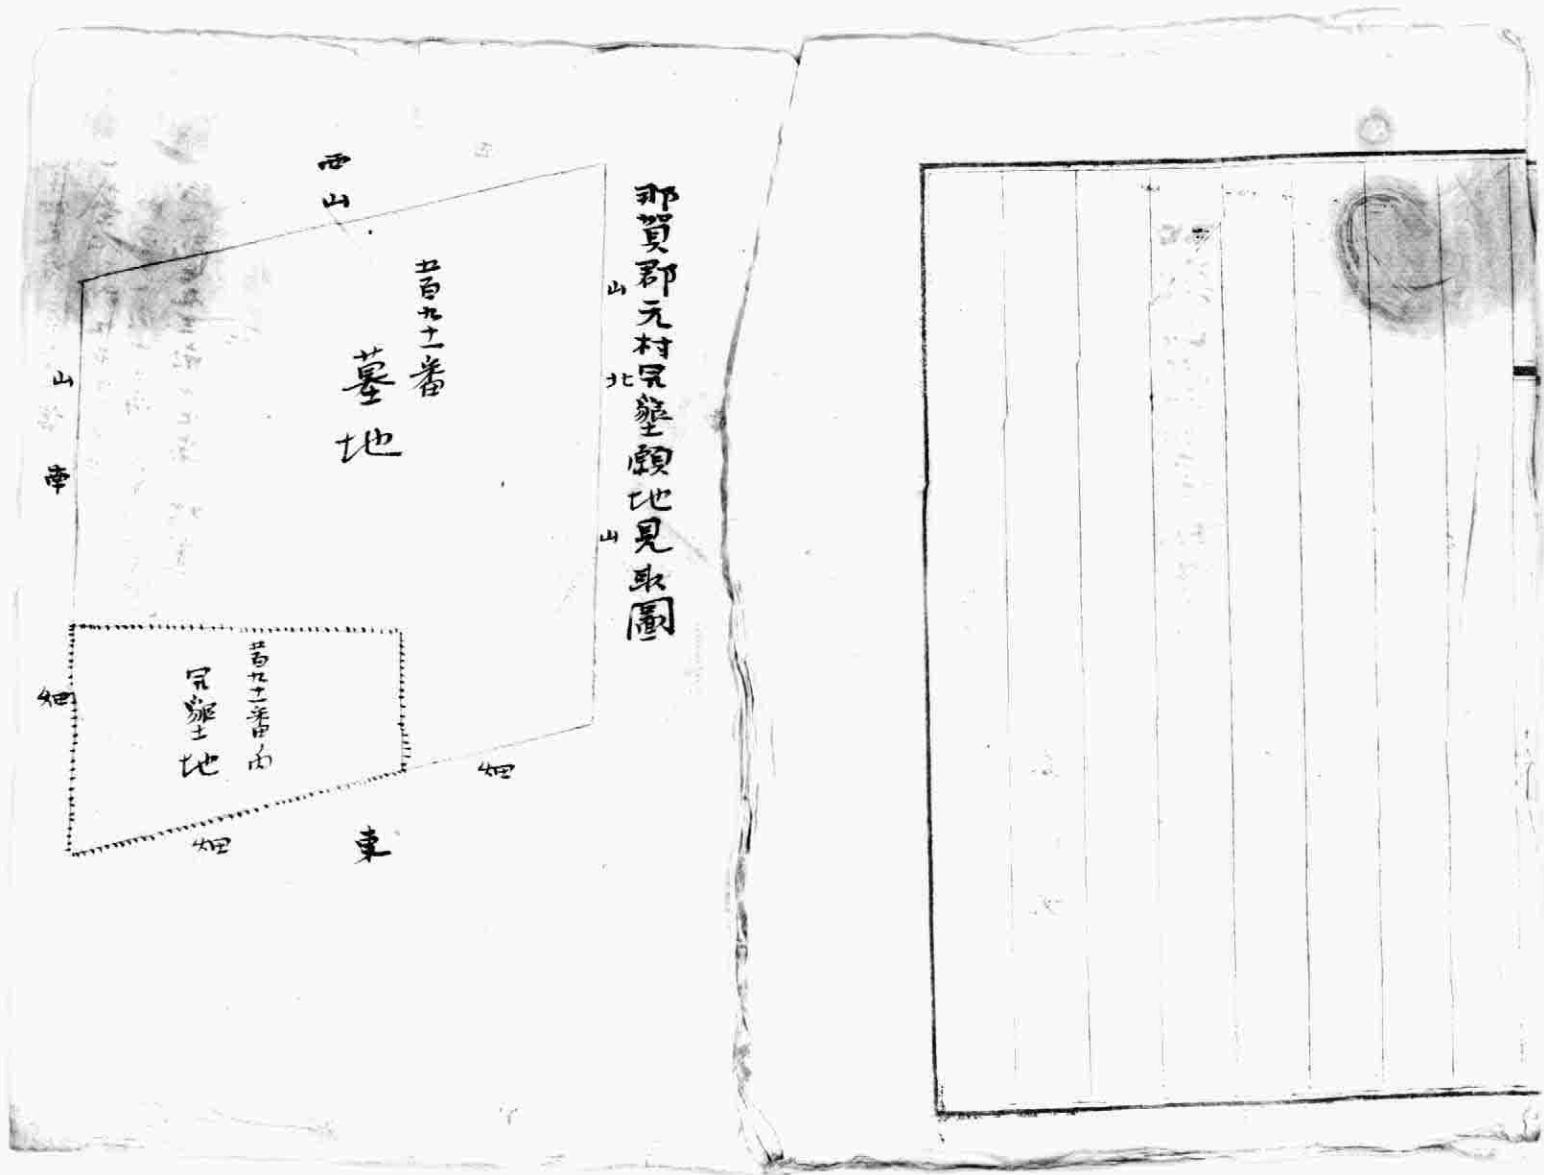 那賀郡元村開墾願地見取圖
山
北
山
西
山
五百九十一番
墓地
山
南
五百九十一番内
開墾地
畑
畑
畑
東